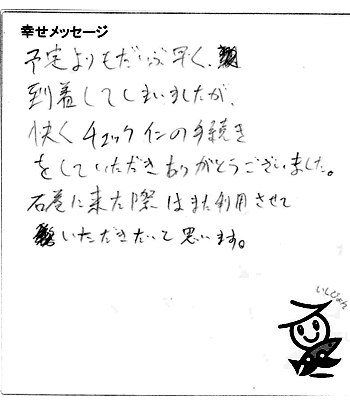 幸せメッセージ
予定よりもだいぶ早く、
到着してしまいましたが、
快くチェックインの手続き
をしていただきありがとうございました。
石巻に来た際はまた利用させて
いただきたいと思います。
いしぴょん